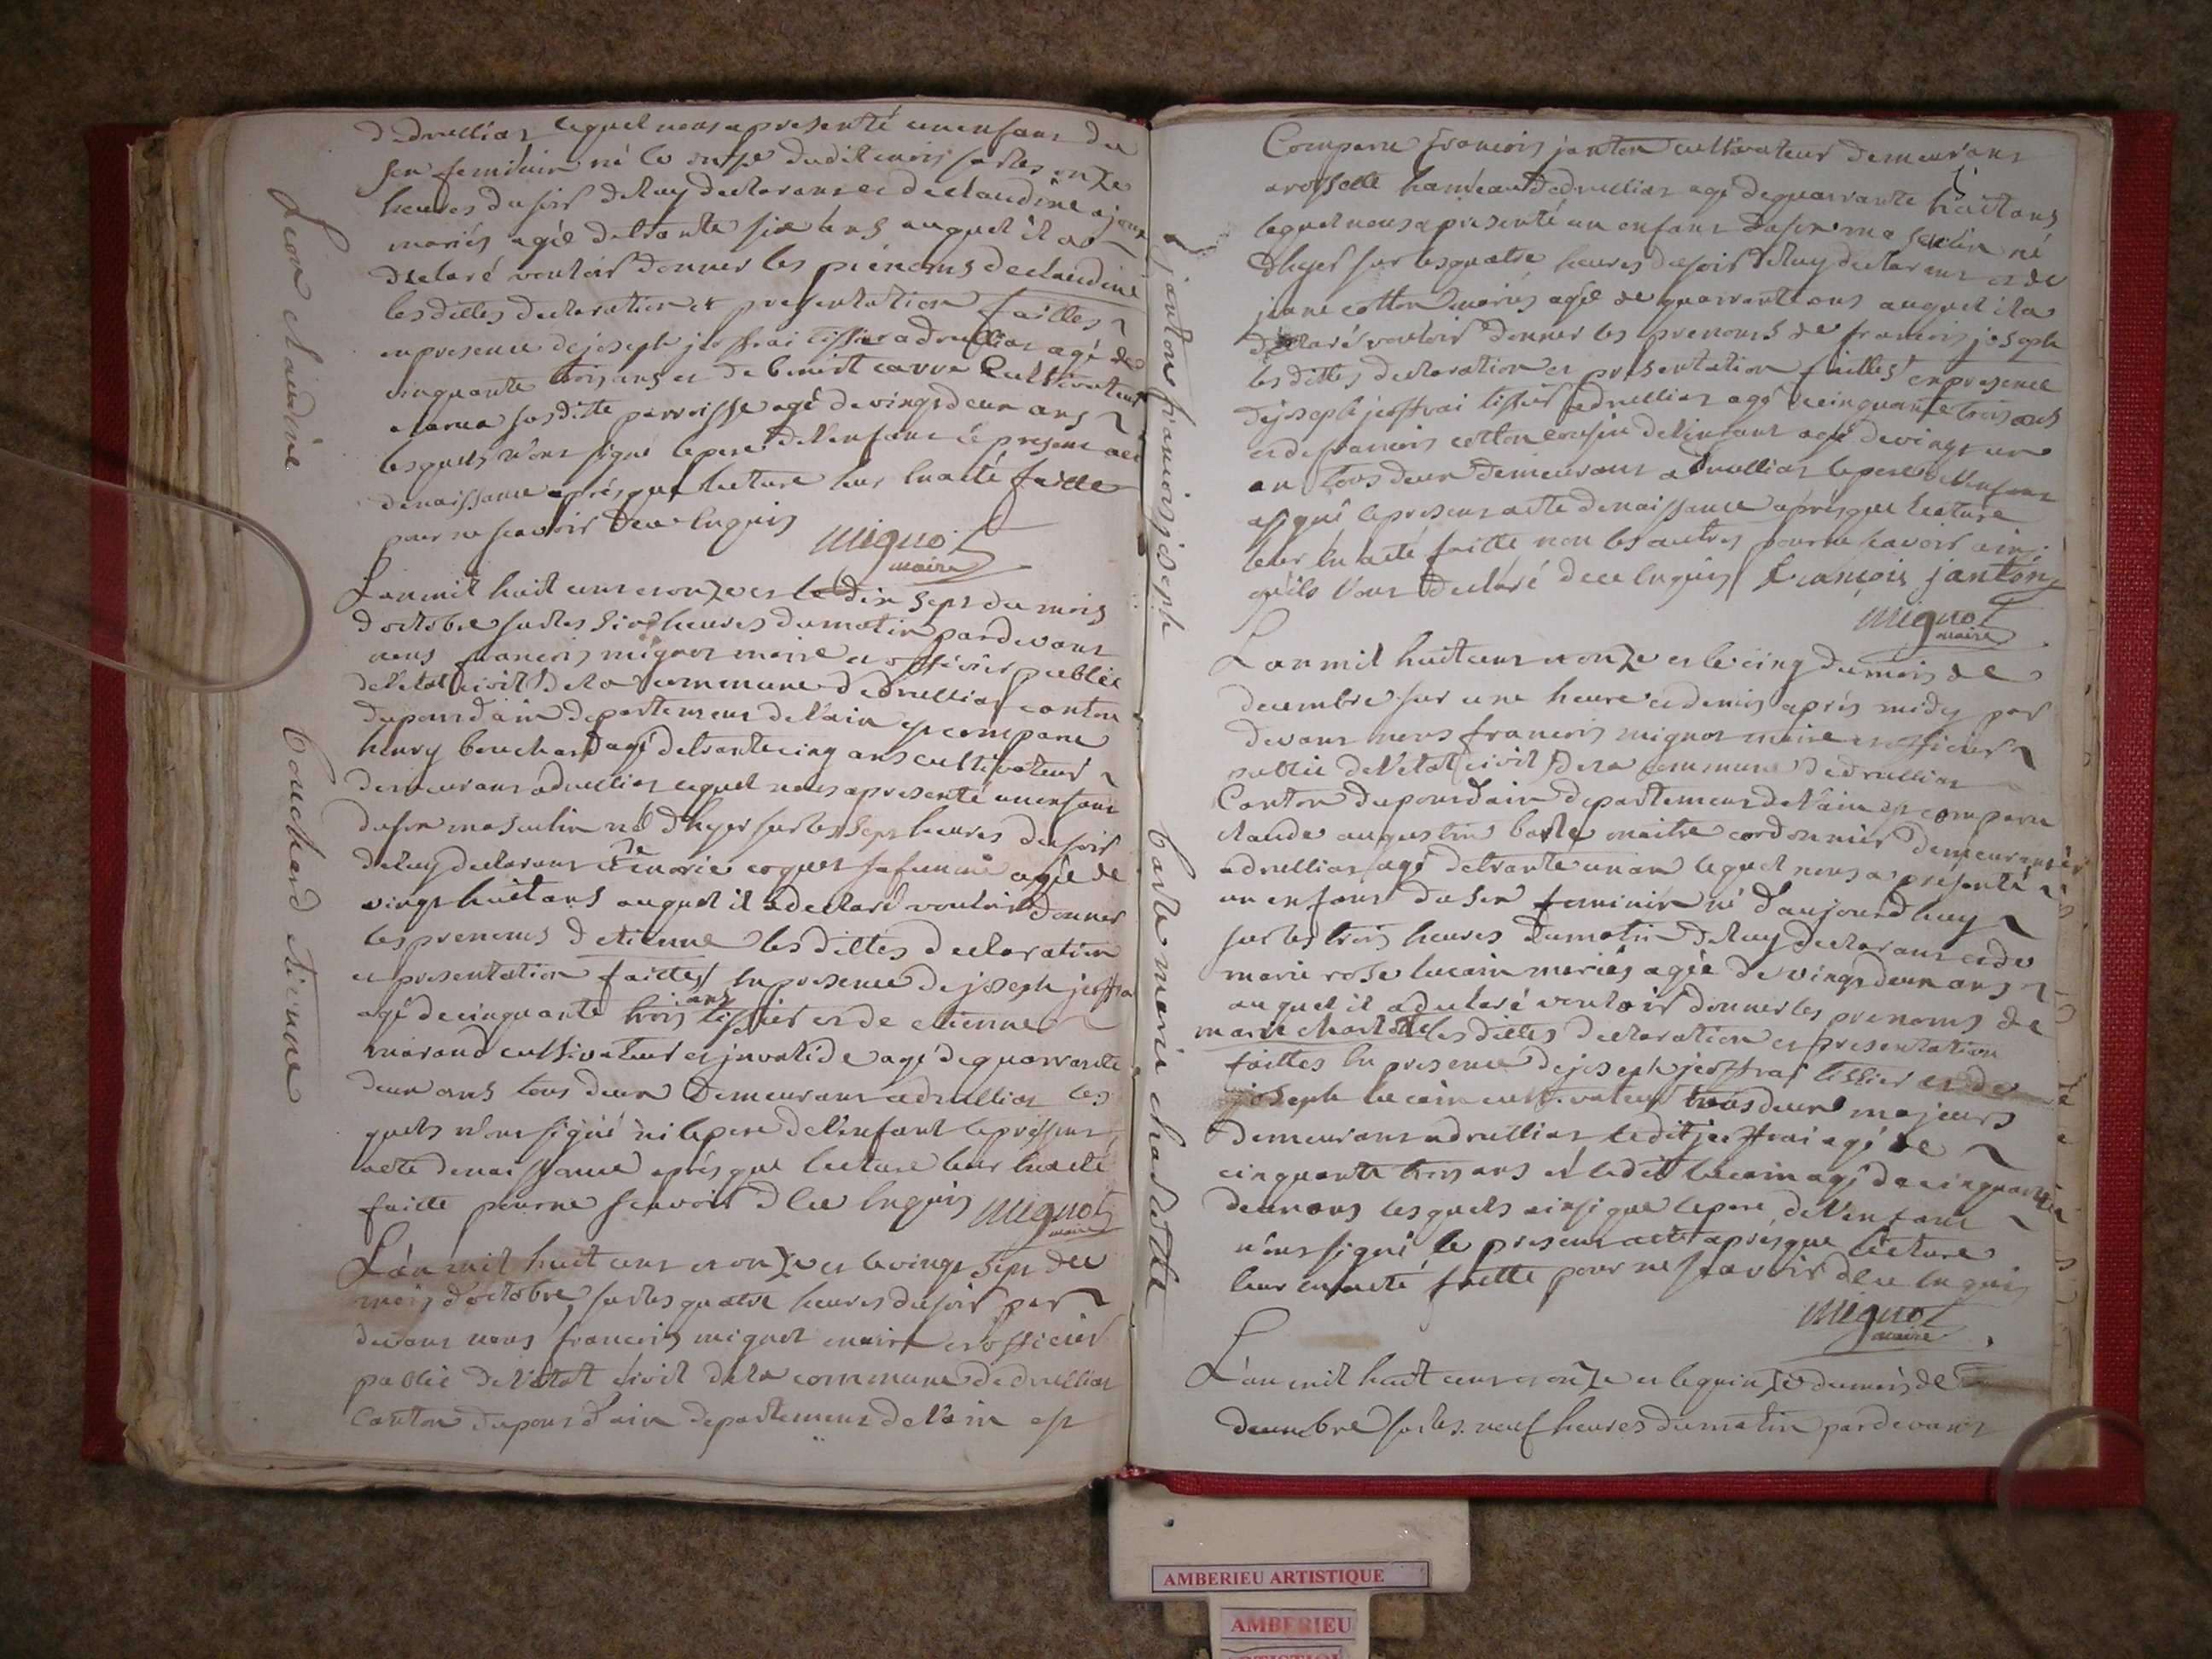 Leon claudine
dedruillias lequel nous a presenté un enfans du
sex feminin né le onse duditmois sur les onze
heures du soir deluy declarans et declaudine
mariés agée detrante six ans auquel il a
declaré vouloir donner les prénoms declaudine
les dittes declaration et presentation faittes
en presence dejoseph jeoffrai tissier adruillias agé de
cinquante trois ans et de benoit carre Cultivateur
susditte parroisse agé de vingt deux ans
lesquels n'ons signé le pere del'enfans le presens acte
denaissance aprés que lecture leur en a été faitte
pour ne scavoir dece enquis
Mignot
maire
bouchard etienne
L'an mil huit cens et onze et le dix sept du mois
d'octobre sur les six heures dumatin pardevans
nous francois mignot maire et officier public
del'etat civil de la commune dedruillias canton
dupons d'ain departemens del'ain es compare
henry bouchard agé detrante cinq ans cultivateur
demeurans adruillias lequel nous apresenté un enfans
du sex masculin né d'hyer sur les sept heures du soir
de luy declarans et de marie coques sa femme agée de
vingt huit ans auquel il a declaré vouloir donner
les prenoms d'etienne les dittes declaration
et presentation faittes en presence dejoseph jeoffrai
agé decinquante trois ans tissier et de etienne
marand cultivateur et invalide agé dequarrante
deux ans tous deux demeurans adruillias les
quels n'ons signé ni le pere del'enfant le presens
acte denaissance aprés que lecture leur en a été
faitte pour ne scavoir dece enquis Mignot
maire
L'an mil huit cens et onze et le vingt sept du
mois d'octobre sur les quatre heures du soir par
devans nous francois mignot maire et officier
public de l'etat civil dela commune dedruillias
Canton dupons d'ain departemens del'ain est
janton francois joseph
Compare francois janton cultivateur demeurans
arossette hameau dedruillias agé dequarrante huit ans
lequel nous a presenté un enfans du sex masculin né
d'hyer sur les quatre heures du soir deluy declarans et de
jeane cotton mariés agée de quarrante ans auquel il a
declaré vouloir donner les prenoms de francois joseph
les dittes declaration et presentation faittes en presence
dejoseph jeoffrai tissier adruillias agé decinquante trois ans
et de francois cotton cousin del'enfans agé devingt un
an tous deux demeurans adruillias le pere del'enfans
a signé le presens acte denaissance aprés que lecture
leur en a été faitte non les autres pour ne scavoir ainsi
qu'ils l'ons declaré dece enquis francois janton
Mignot
maire
barle marie charlotte
L'an mil huit cens et onze et le cinq du mois de
decembre sur une heure et demis aprés midy par
devans nous francois mignot maire et officier
public del'etat civil dela commune dedruillias
Canton dupons d'ain departemens del'ain es compare
claude augustin barle maitre cordonnier demeurans
adruillias agé detrante un an lequel nous a présenté
un enfans du sex feminin né d'aujourd'huy
sur les trois heures dumatin deluy declarans et de
marie rose lucain mariés agée de vingt deux ans
auquel il a declaré vouloir donner les prenoms de
marie charlotte les dittes declaration et presentation
faittes en presence dejoseph jeoffrai tissier et de
joseph lucain cultivateur tous deux majeurs
demeurans adruillias ledit jeoffrai agé de
cinquante trois ans et ledit lucain agé de cinquante
deux ans lesquels ainsi que le pere del'enfans
n'ons signé le presens acte aprés que lecture
leur en a été faitte pour ne scavoir dece enquis
Mignot
maire
L'an mil huit cens et onze et le quinze du mois de
decembre sur les neuf heures dumatin pardevans
AMBERIEU ARTISTIQUE
AMBERIEU
ARTISTIQUE